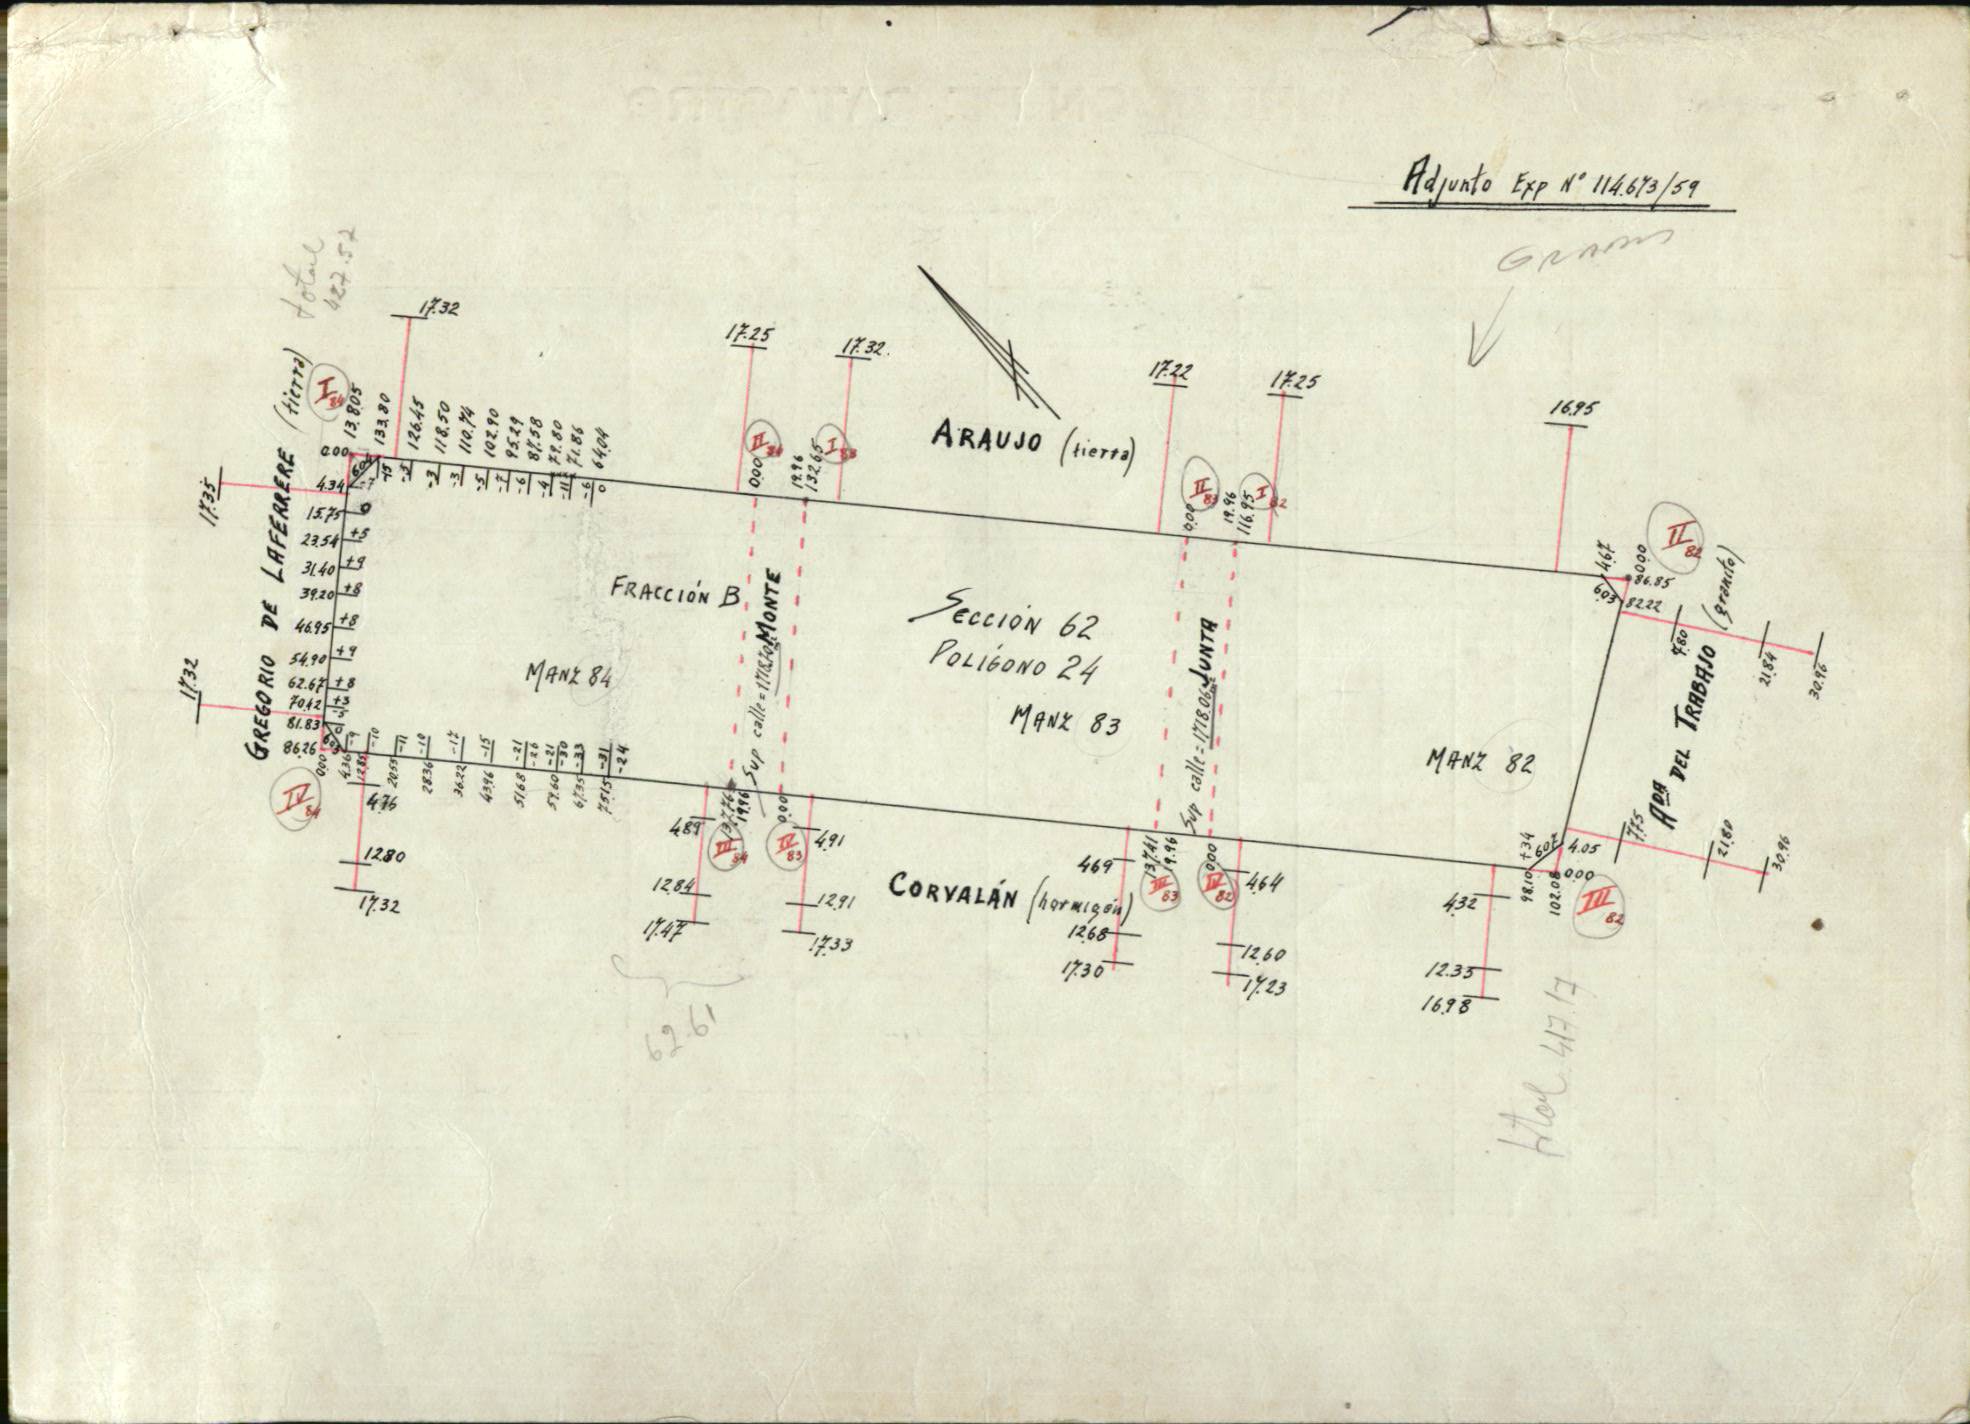 Adjunto Exp Nº 114.673/59
total
427.57
17.32
17.25
17.32
17.22
17.25
16.95
ARAUJO (tierra)
GREGORIO DE LAFERRERE (tierra)
I 84
13.805
133.80
126.45
118.50
110.74
102.90
95.29
87.58
79.80
71.86
64.04
0.00
604
-15
-5
-3
-3
-5
-7
-6
-4
-11
-6
0
II 84
0.00
19.96
132.65
I 83
II 83
0.00
19.96
116.95
I 82
II 82
4.67
0.00
86.85
603
82.22
7.80
21.84
30.96
17.35
4.34
-7
15.75
0
23.54
+5
31.40
+9
39.20
+8
46.95
+8
54.90
+9
62.67
+8
70.42
+3
-5
81.83
0
86.26
17.32
FRACCIÓN B
MANZ 84
MONTE
SECCIÓN 62
POLÍGONO 24
MANZ 83
JUNTA
Sup calle = 1718.06 m²
MANZ 82
Aᴰᴬ DEL TRABAJO (granito)
-9
-10
-11
-10
-17
-15
-21
-26
-21
-30
-33
-31
-24
0.00
4.36
12.85
20.55
28.36
36.22
43.96
51.68
59.60
67.35
75.15
IV 84
4.76
12.80
17.32
4.89
12.84
17.47
137.76
19.96
III 84
0.00
IV 83
4.91
12.91
17.33
CORVALÁN (hormigón)
4.69
12.68
17.30
137.41
19.96
III 83
0.00
IV 82
4.64
12.60
17.23
4.32
12.35
16.98
+34
607
4.05
0.00
98.10
102.08
III 82
7.75
21.80
30.96
62.61
total 417.17